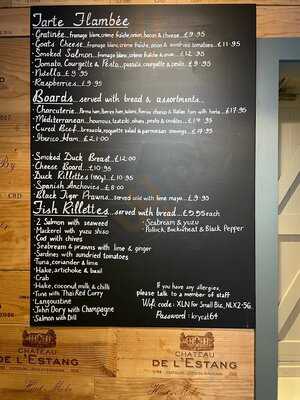 Tarte Flambée
- Gratinée...fromage blanc, crème fraîche, onion, bacon & cheese...£9.95
- Goats Cheese...fromage blanc, crème fraîche, onion & sundried tomatoes...£11.95
- Smoked Salmon...fromage blanc, crème fraîche & onion...£12.95
- Tomato, Courgette & Pesto...passata, courgette & pesto...£9.95
- Nutella...£9.95
- Raspberries...£9.95
Boards served with bread & assortments...
- Charcuterie... ham & Italian ham with tarte...£17.95
- Mediterranean...houmous, tzatziki, olives, pesto & crudités...£14.95
- Cured Beef...bresaola, roquette salad & parmesan shavings...£17.95
- Iberico Ham...£21.00
- Smoked Duck Breast...£12.00
- Cheese Board...£10.95
- Duck Rillettes (180g)...£10.95
- Spanish Anchovies...£8.00
- Black Tiger Prawns...served cold with lime mayo...£9.95
Fish Rillettes...served with bread...£9.95 each
- Salmon with seaweed
- Mackerel with yuzu shiso
- Cod with chives
- Seabream & prawns with lime & ginger
- Sardines with sundried tomatoes
- Tuna, coriander & lime
- Hake, artichoke & basil
- Crab
- Hake, coconut milk & chilli
- Tuna with Thai Red Curry
- Langoustine
- John Dory with Champagne
- Salmon with Dill
- Seabream & yuzu
- Pollock, Buckwheat & Black Pepper
If you have any allergies,
please talk to a member of staff
Wifi code: XLN for Small Biz, NLX2-5G
Password: krycat64
CHATEAU
DE L'ESTANG
CHATEAU
DE L'ESTANG